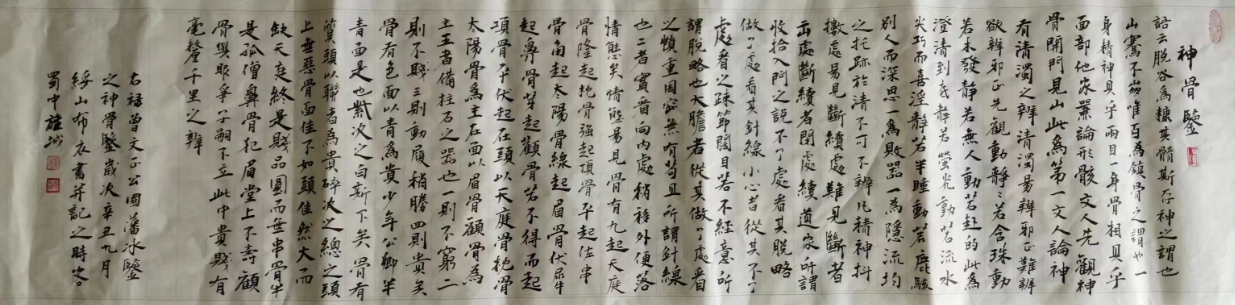 神骨鑒
語云脱谷為糠其髓斯存神之謂也
山騫不崩唯百為鎮骨之謂也一
身精神具乎兩目一身骨相具乎
面部他家兼論形骸文人先觀神
骨開門見山此為第一文人論神
有清濁之辨清濁易辨邪正難辨
欲辨邪正先觀動靜靜若含珠動
若木發靜若無人動若赴的此為
澄清到底靜若螢光動若流水
尖巧而喜淫靜若半睡動若鹿駭
別人而深思一為敗器一為隱流均
之托跡於清不可不辨凡精神抖
擻處易見斷續處難見斷者
出處斷續者閉處續道家所謂
收拾入門之說不了處看其脱略
做了處看其針線小心者從其不了
處看之疎節闊目若不經意所
謂脱略也大膽者從其做了處看
之慎重周密無有苟且所謂針線
也二者實看向内處稍移外便落
情態矣情態易見骨有九起天庭
骨隆起枕骨強起頂骨平起佐串
骨角起太陽骨線起眉骨伏犀
起鼻骨芽起顴骨若不得而起
項骨平伏起在頭以天庭骨枕骨
太陽骨為主在面以眉骨顴骨為
主五者備柱石之器也一則不窮二
則不賤三則動履稍勝四則貴矣
骨有色面以青為貴少年公卿半
青面是也紫次之白斯下矣骨有
質頭以聯者為貴碎次之總之頭
上無惡骨面佳不如頭佳然大而
缺天庭終是賤品圓而無串骨半
是孤僧鼻骨犯眉堂上不壽顴
骨與眼爭子嗣不立此中貴賤有
毫釐千里之辨
右錄曾文正公國藩冰鑒
之神骨鑒歲次辛丑九月
綏山布衣書并記之時客
蜀中